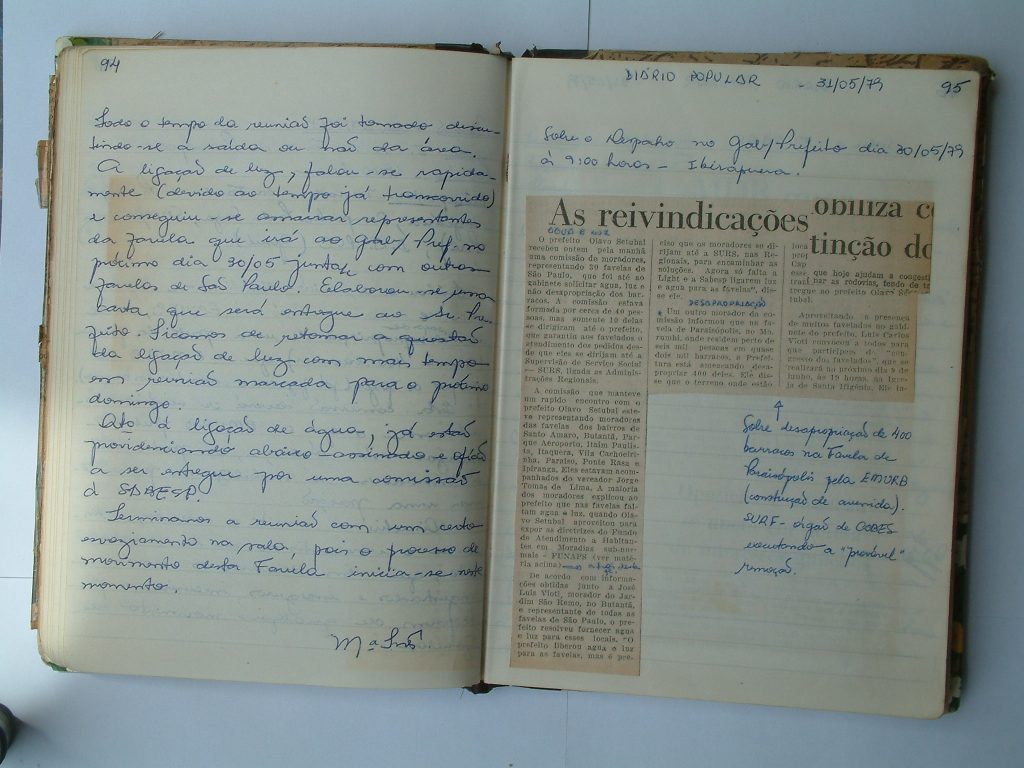 94
Todo o tempo da reunião foi tomado discu-
tindo-se a saída ou não da área.
A ligação de luz, falou-se rapida-
mente (devido ao tempo já transcorrido)
e conseguiu-se amarrar representantes
da favela que irá ao Gab/ Pref. no
próximo dia 30/05 junto com outras
favelas de São Paulo. Elaborou-se uma
carta que será entregue ao Sr. Pre-
feito. Ficamos de retomar a questão
da ligação de luz com mais tempo
em reunião marcada para o próximo
domingo.
Qto à ligação de água, já estão
providenciando abaixo assinado e ofício
a ser entregue por uma comissão
à SABESP.
Terminamos a reunião com um certo
esvaziamento na sala, pois o processo de
movimento desta Favela inicia-se neste
momento.
Mª Inês
DIÁRIO POPULAR - 31/05/79
95
Sobre o Despacho no Gab/Prefeito dia 30/05/79
à 9:00 horas - Ibirapuera.
As reivindicações
ÁGUA E LUZ
O prefeito Olavo Setubal
recebeu ontem pela manhã
uma comissão de moradores,
representando 30 favelas de
São Paulo, que foi até ao
gabinete solicitar agua, luz e
não desapropriação dos bar-
racos. A comissão estava
formada por cerca de 40 pes-
soas, mas somente 10 delas
se dirigiram até o prefeito,
que garantiu aos favelados o
atendimento dos pedidos des-
de que eles se dirijam até a
Supervisão de Serviço Social
— SURS, ligada as Adminis-
trações Regionais.
A comissão que manteve
um rapido encontro com o
prefeito Olavo Setubal este-
ve representando moradores
das favelas dos bairros de
Santo Amaro, Butantã, Par-
que Aeroporto, Itaim Paulis-
ta, Itaquera, Vila Cachoeiri-
nha, Paraiso, Ponte Rasa e
Ipiranga. Eles estavam acom-
panhados do vereador Jorge
Tomas de Lima. A maioria
dos moradores explicou ao
prefeito que nas favelas fal-
tam agua e luz, quando Ola-
vo Setubal aproveitou para
expor as diretrizes do Fundo
de Atendimento a Habitan-
tes em Moradias sub-nor-
mais - FUNAPS (ver maté-
ria acima)
De acordo com informa-
ções obtidas junto a José
Luis Vioti, morador do Jar-
dim São Remo, no Butantã,
e representante de todas as
favelas de São Paulo, o pre-
feito resolveu fornecer agua
e luz para esses locais. "O
prefeito liberou agua e luz
para as favelas, mas é pre-
ciso que os moradores se di-
rijam até a SURS, nas Re-
gionais, para encaminhar as
soluções. Agora só falta a
Light e a Sabesp ligarem luz
e agua para as favelas", dis-
se ele.
DESAPROPRIAÇÃO
Um outro morador da co-
missão informou que na fa-
vela de Paraisópolis, no Mo-
rumbi, onde residem perto de
seis mil pessoas em quase
dois mil barracos, a Prefei-
tura está ameaçando desa-
propriar 400 deles. Ele dis-
se que o terreno onde estão
obiliza
tinção do
loca
Cap
esse, que hoje ajudam a congesti
as rodovias, tendo
tregue ao prefeito Olavo Se-
tubal.
Aproveitando a presença
de muitos favelados no gabi-
nete do prefeito, Luis Carlos
Vioti convocou a todos para
que participem do "con-
gresso dos favelados", que se
realizará no proximo dia 9 de
junho, às 19 horas, na Igre-
ja de Santa Ifigênia. Ele in-
Sobre desapropriação de 400
barracos na Favela de
Paraisópolis pela EMURB
(construção de avenida).
SURF - órgão de COBES
executando a "provável"
remoção.